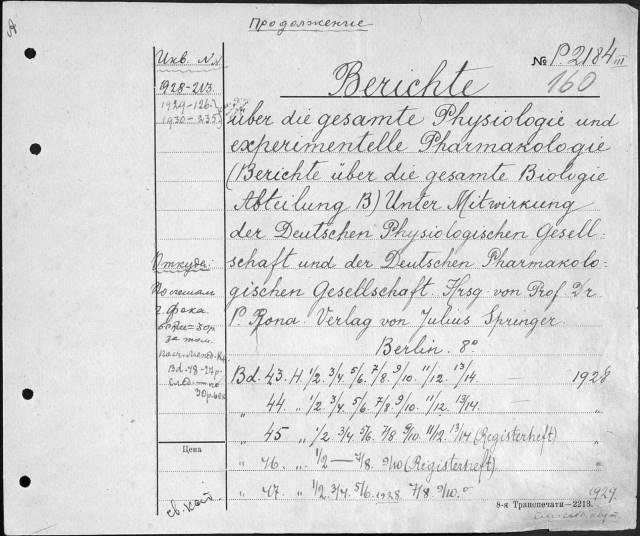 Продолжение
Инв. NN
№ P. 2184 III
160
1928-213.
1929-126.
1930-235
Berichte
über die gesamte Physiologie und
experimentelle Pharmakologie
(Berichte über die gesamte Biologie
Abteilung B) Unter Mitwirkung
der Deutschen Physiologischen Gesell-
schaft und der Deutschen Pharmakolo-
gischen Gesellschaft. Hrsg. von Prof. Dr
P. Rona. Verlag von Julius Springer
Berlin. 8°
Откуда:
за том.
Bd. 43. H. 1/2. 3/4. 5/6. 7/8. 9/10. 11/12. 13/14. — 1928
„ 44. „ 1/2. 3/4. 5/6. 7/8. 9/10. 11/12. 13/14. — „
„ 45 „ 1/2. 3/4. 5/6. 7/8. 9/10. 11/12. 13/14 (Registerheft) „
„ 46. „ 1/2 — 7/8. 9/10 (Registerheft) „
„ 47. „ 1/2. 3/4. 5/6. 1928. 7/8. 9/10. 1929.
Цена
св. кат.
8-я Транспечати—2213.